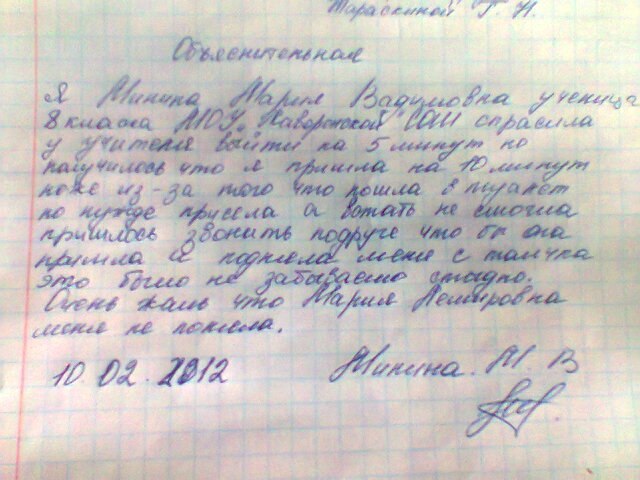 Тараскиной Г. Н.
Объяснительная
Я Минина Мария Вадимовна ученица
8 класса МОУ Каворотской СОШ спрасила
у учителя выйти на 5 минут но
получилось что я пришла на 10 минут
позже из-за того что пошла в туалет
по нужде присела а встать не смогла
пришлось звонить подруге что бы она
пришла и подняла меня с толчка
это было не забываемо стыдно.
Очень жаль что Мария Лемировна
меня не поняла.
10 02. 2012 Минина. М. В